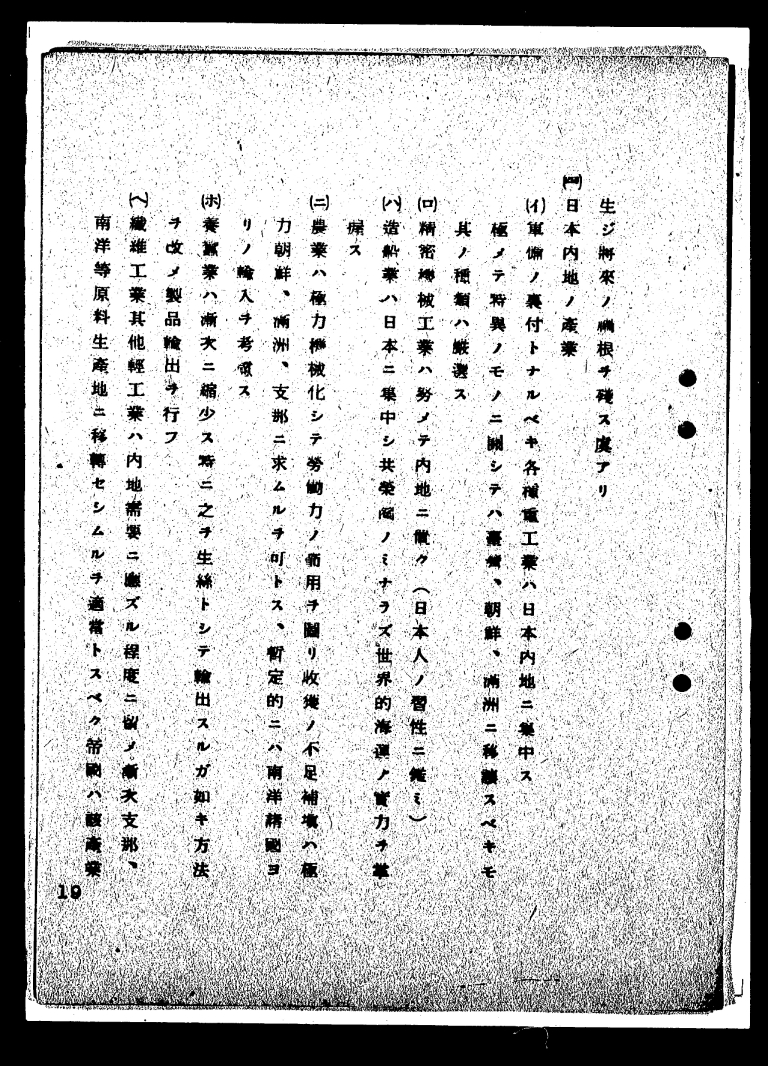 生ジ將來ノ禍根ヲ殘ス虞アリ
㈣日本内地ノ產業
(イ)軍備ノ裏付トナルベキ各種重工業ハ日本内地ニ集中ス
極メテ特異ノモノニ關シテハ臺灣、朝鮮、滿洲ニ移讓スベキモ
其ノ種類ハ嚴選ス
(ロ)精密機械工業ハ努メテ内地ニ置ク(日本人ノ習性ニ鑑ミ)
(ハ)造船業ハ日本ニ集中シ共榮圈ノミナラズ世界的海運ノ實力ヲ掌
握ス
(ニ)農業ハ極力機械化シテ勞働力ノ節用ヲ圖リ收獲ノ不足補塡ハ極
力朝鮮、滿洲、支那ニ求ムルヲ可トス、暫定的ニハ南洋諸國ヨ
リノ輸入ヲ考慮ス
(ホ)養蠶業ハ漸次ニ縮少ス特ニ之ヲ生絲トシテ輸出スルガ如キ方法
ヲ改メ製品輸出ヲ行フ
(ヘ)纖維工業其他輕工業ハ内地需要ニ應ズル程度ニ留メ漸次支那、
南洋等原料生產地ニ移轉セシムルヲ適當トスベク帝國ハ該產業
19